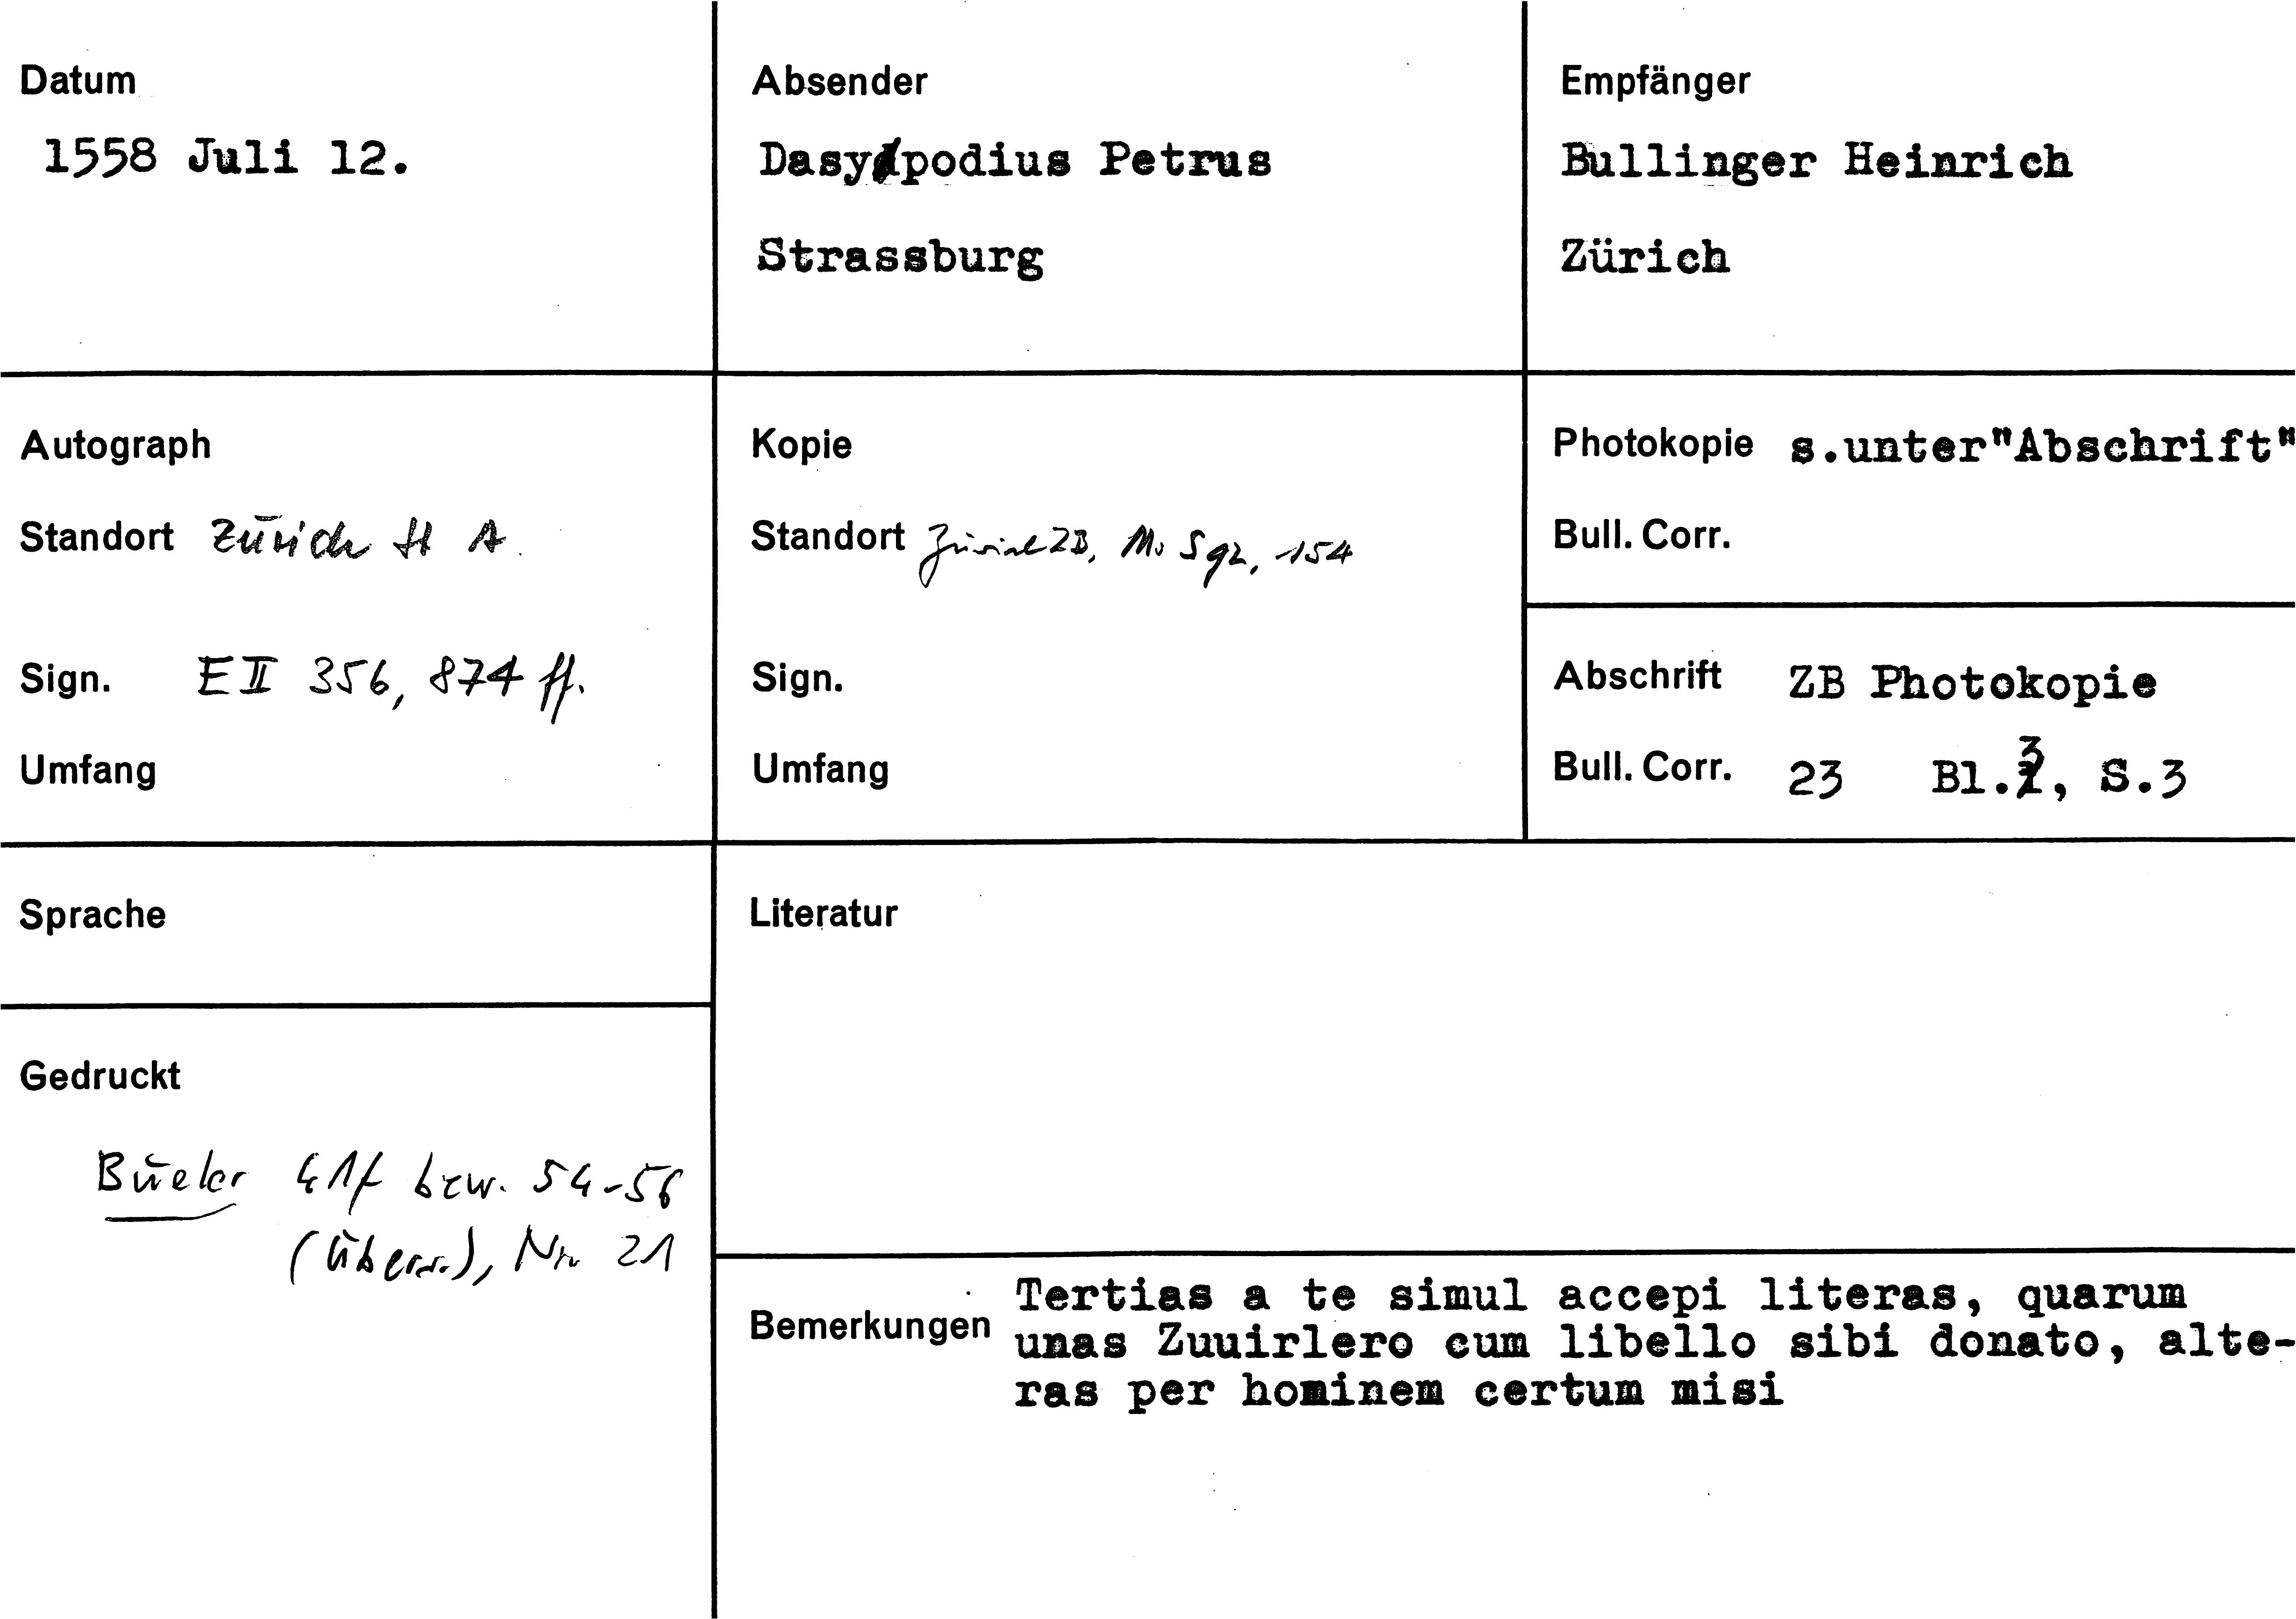 Datum
1558 Juli 12.
Absender
Dasypodius Petrus
Strassburg
Empfänger
Bullinger Heinrich
Zürich
Autograph
Standort Zürich StA
Sign. E II 356, 874 ff.
Umfang
Kopie
Standort Zürich ZB, Ms S 92, 154
Sign.
Umfang
Photokopie s.unter"Abschrift"
Bull. Corr.
Abschrift ZB Photokopie
Bull. Corr. 23 Bl.3, S.3
Sprache
Gedruckt
Büeler 41f bzw. 54-56
(Übers.), Nr. 21
Literatur
Bemerkungen Tertias a te simul accepi literas, quarum
unas Zuuirlero cum libello sibi donato, alte-
ras per hominem certum misi